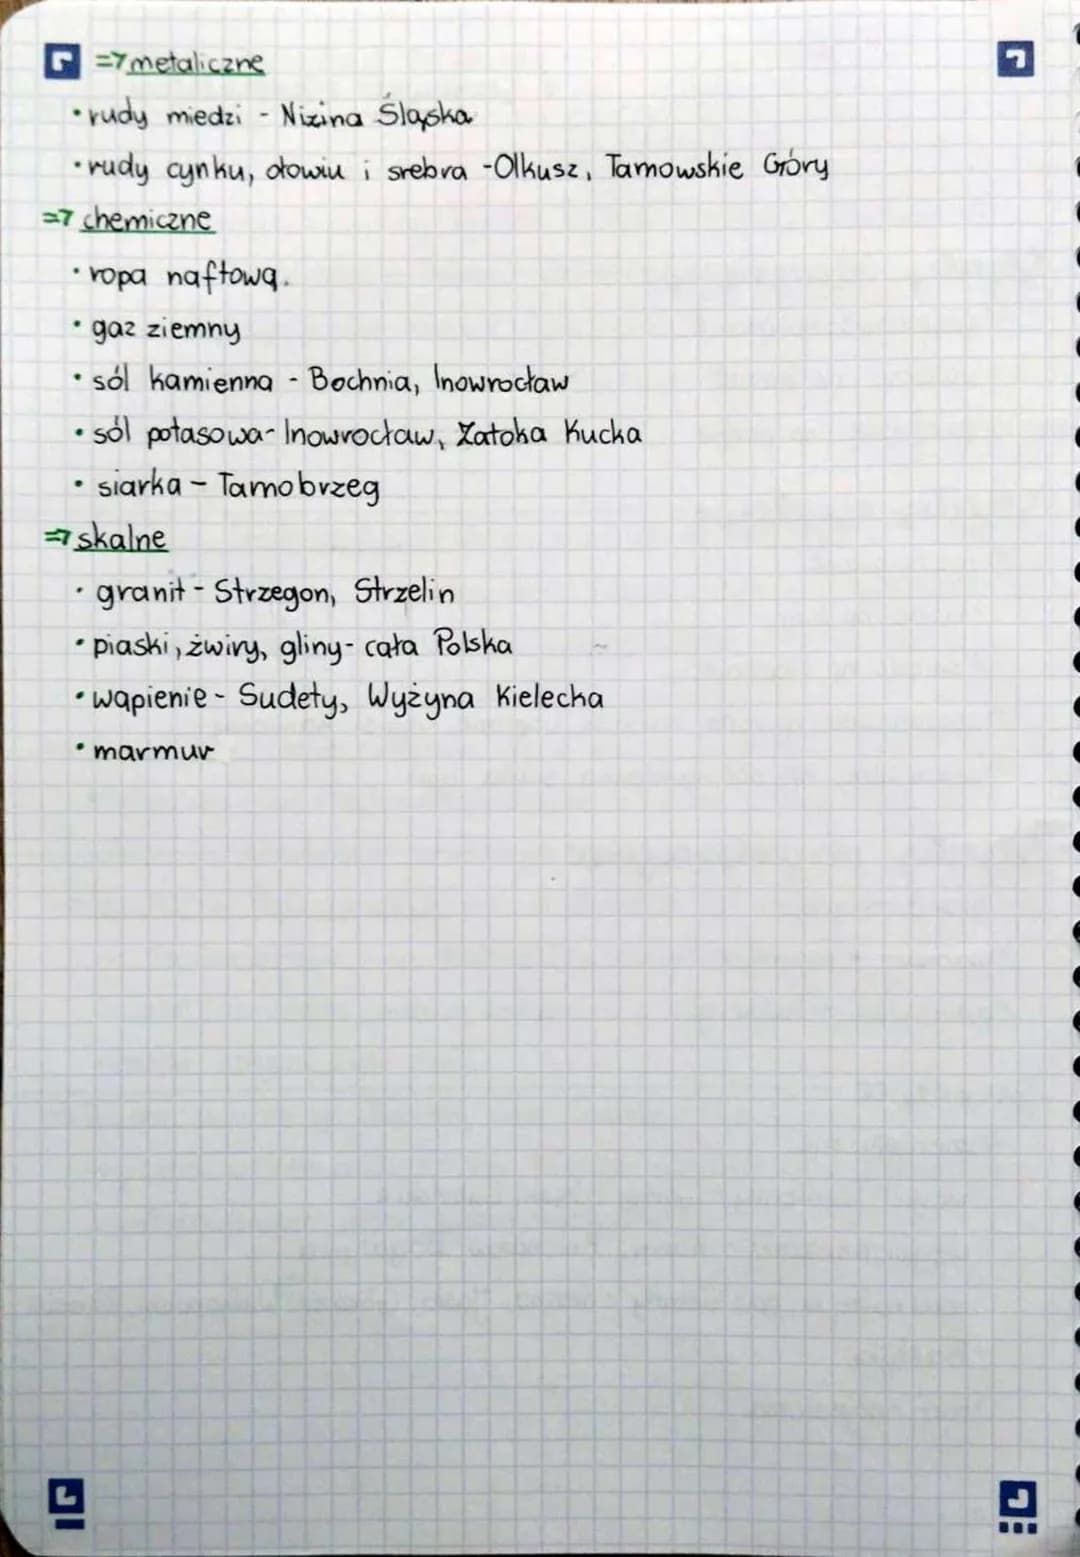 => metaliczne
• rudy miedzi - Nizina Śląska
• rudy cynku, ołowiu i srebra - Olkusz, Tarnowskie Góry
=> chemiczne
• ropa naftową.
• gaz ziemny
• sól kamienna - Bochnia, Inowrocław
• sól potasowa - Inowrocław, Zatoka Kucka
• siarka - Tarnobrzeg
=> skalne
• granit - Strzegon, Strzelin
• piaski, żwiry, gliny - cała Polska
• wapienie - Sudety, Wyżyna Kielecka
• marmur